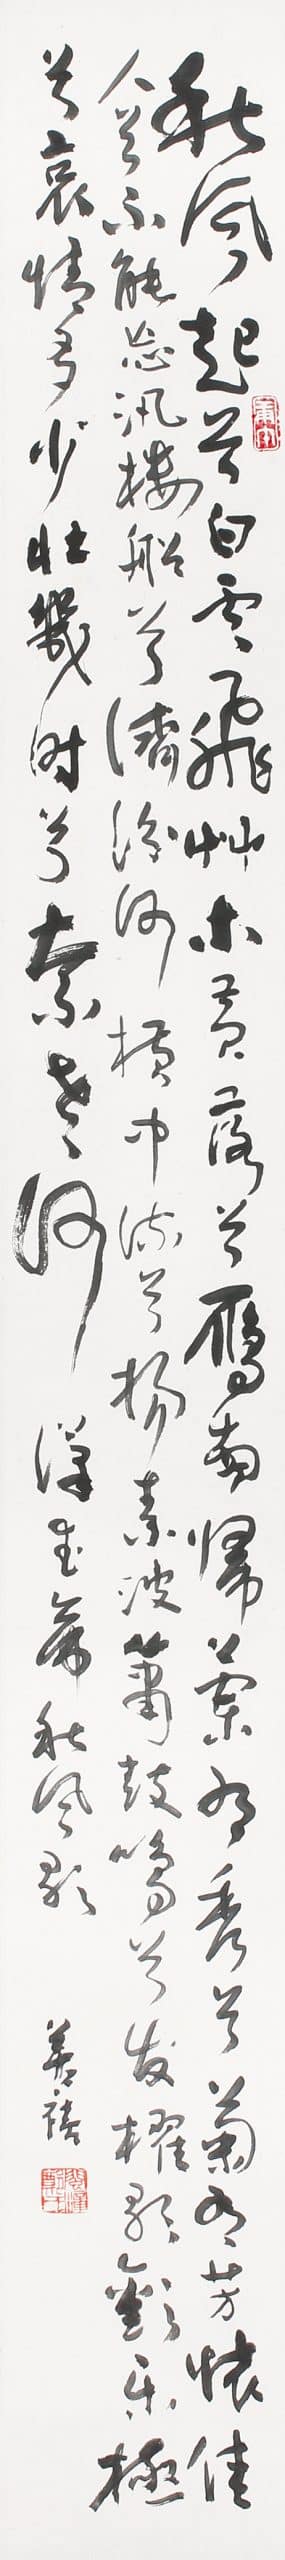 秋風起兮白雲飛艸木黃落兮鴈南歸蘭有秀兮菊有芳懷佳
人兮不能忘汎樓船兮濟汾河橫中流兮揚素波簫鼓鳴兮發櫂歌歡樂極
兮哀情多少壯幾時兮奈老何 漢武帝秋風歌
善禧